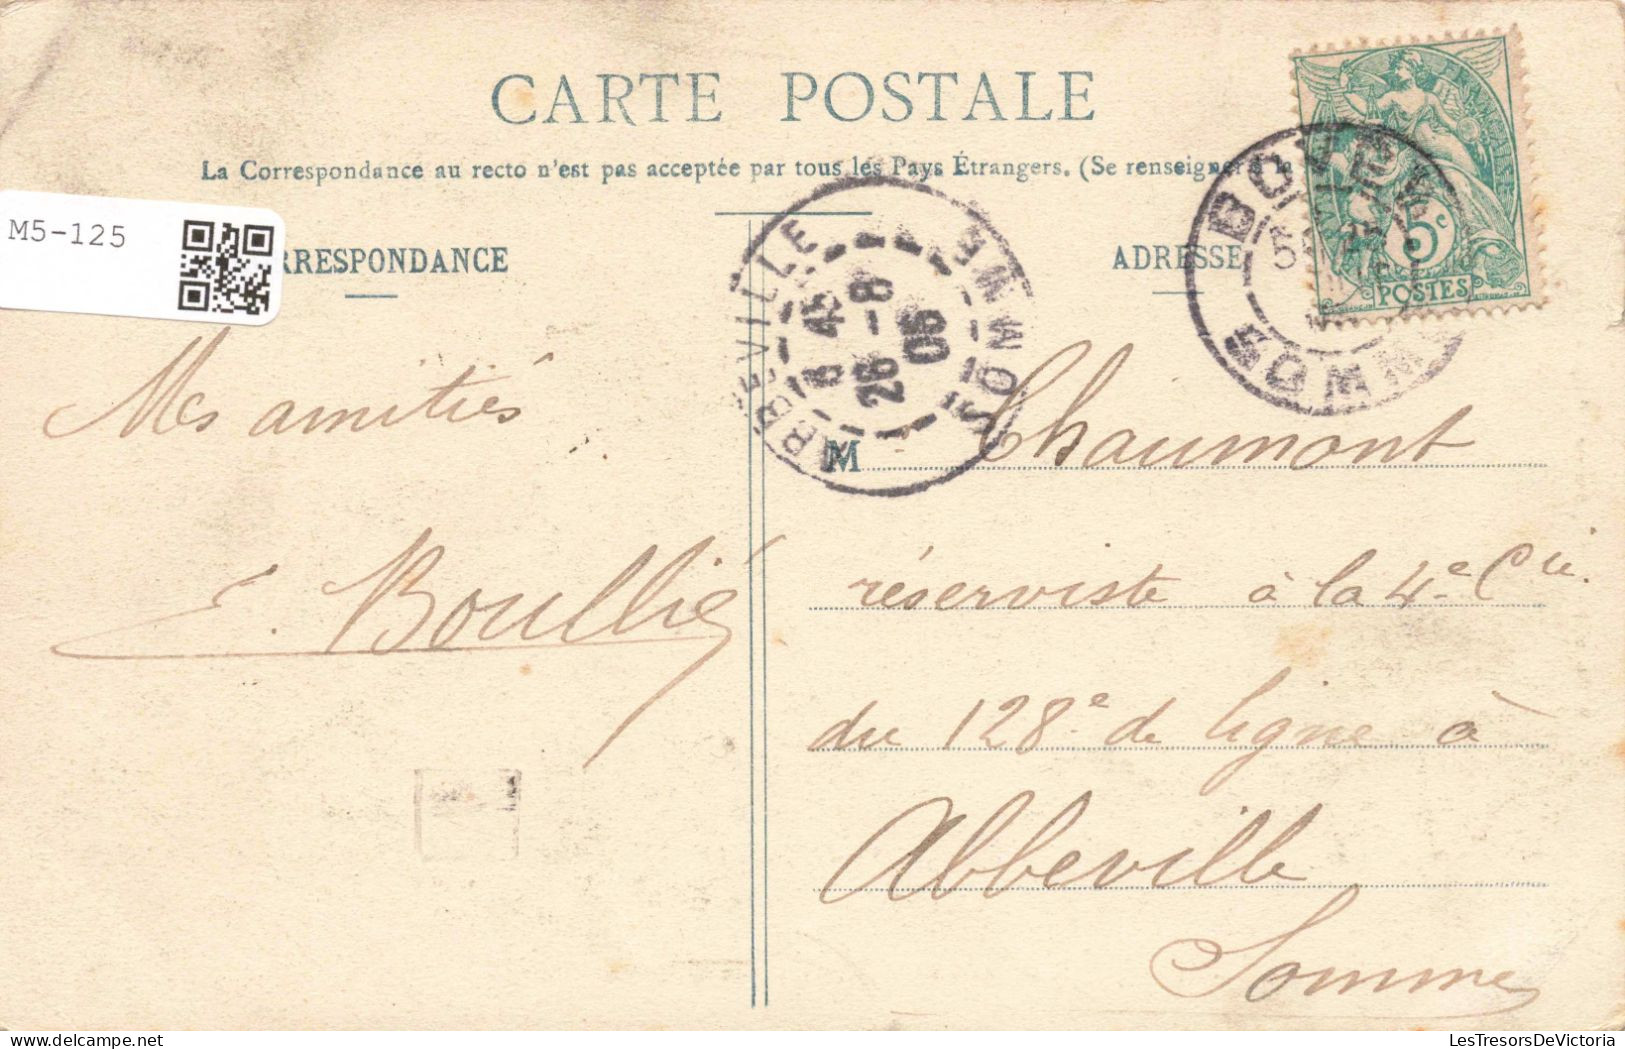 CARTE POSTALE
La Correspondance au recto n'est pas acceptée par tous les Pays Étrangers. (Se renseigner à la
M5-125
RRESPONDANCE
ADRESSE
5c
POSTES
BOVES
SOMME
ABBEVILLE
8 45
26 -8
05
SOMME
Mes amitiés
E. Boullié
M Chaumont
réserviste à la 4e Cie.
du 128e de ligne à
Abbeville
Somme
LesTresorsDeVictoria